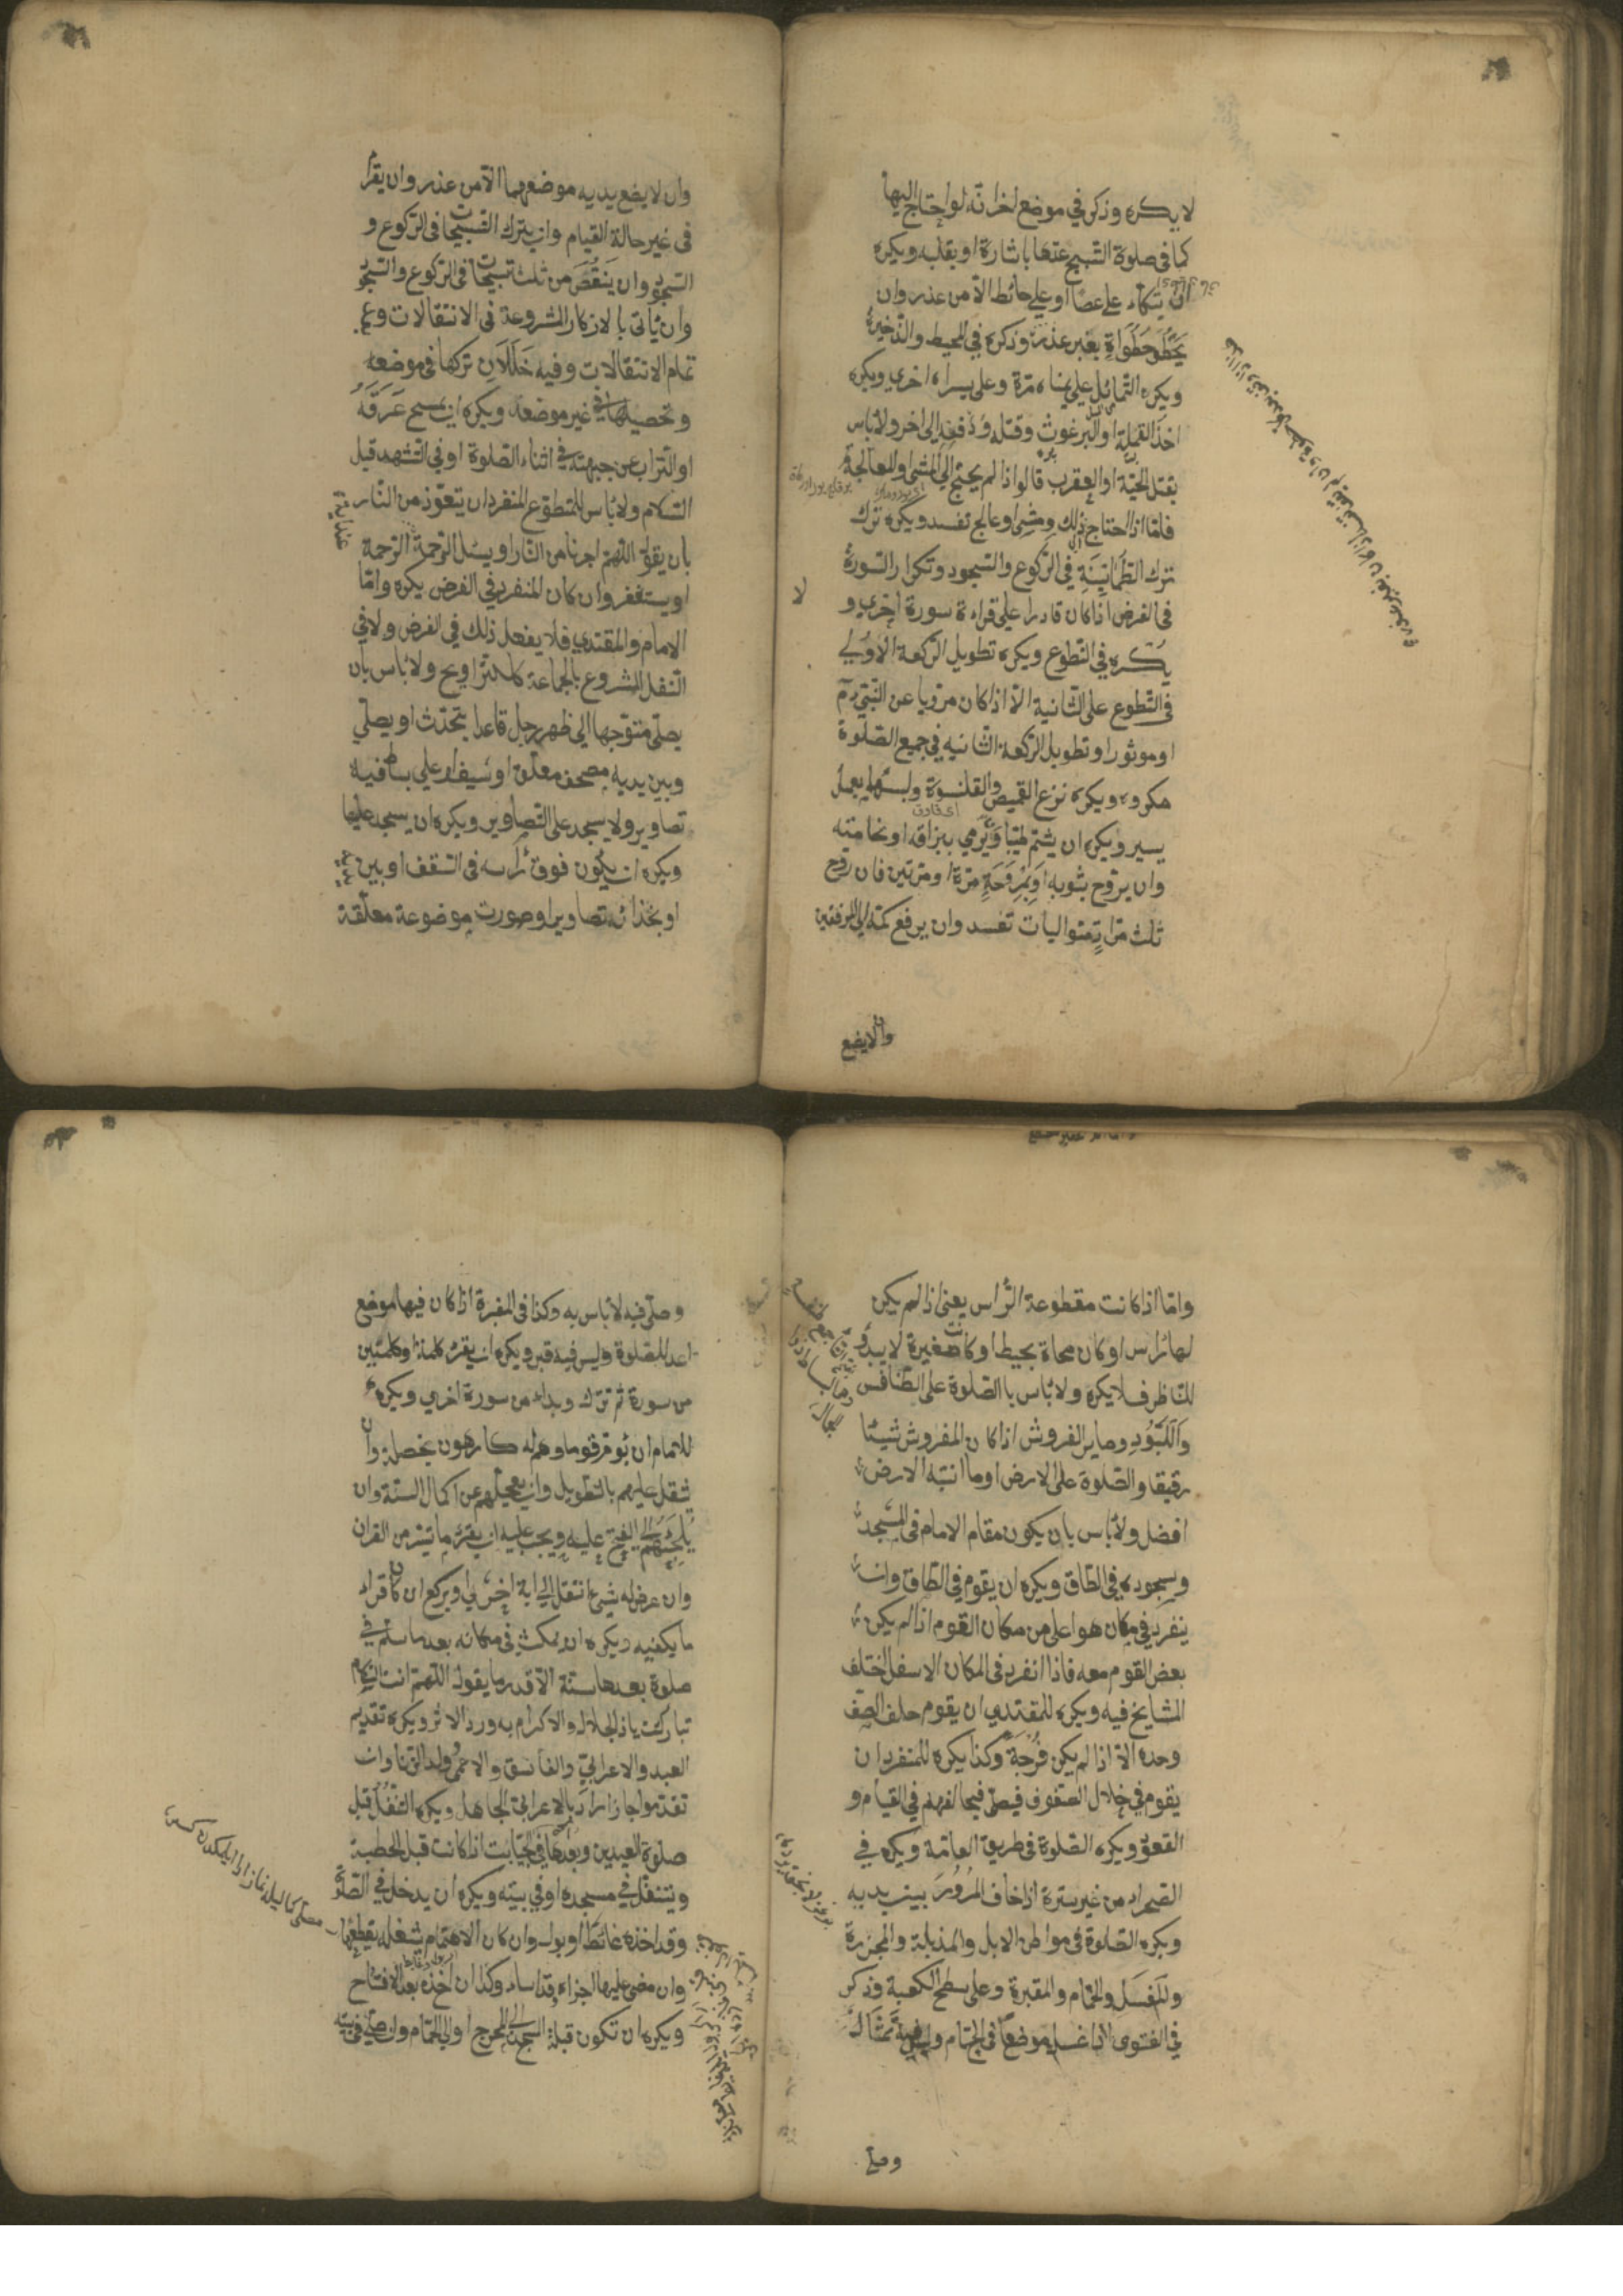 لا يكره وذكر في موضع اخر انه لو احتاج اليها
كما في صلوة التسبيح عدها باشارة او بقلبه ويكره
ان يتكاء على عصا او على حائط الا من عذر وان
يخطو خطوات بغير عذر وذكره في المحيط والذخيرة
ويكره التمائل على يمناه مرة وعلى يسراه اخرى ويكره
اخذ القملة او البرغوث وقتله ودفعه الى اخر ولا باس
بقتل الحية او العقرب قالوا اذا لم يحتج الى المشى او المعالجة
فاما اذا احتاج ذلك ومشى او عالج تفسد ويكره ترك
ترك الطمانينة في الركوع والسجود وتكرار السورة
في الفرض اذا كان قادرا على قراءة سورة اخرى و
يكره في التطوع ويكره تطويل الركعة الاولى
في التطوع على الثانية الا اذا كان مرويا عن النبي
او موثورا وتطويل الركعة الثانية في جميع الصلوة
مكروه ويكره نزع القميص والقلنسوة ولبسهما بعمل
يسير ويكره ان يشتم طيبا ويرمي ببزاقه او نخامته
وان يروح بثوبه او بمروحة مرة او مرتين فان روح
ثلث مرات متواليات تفسد وان يرفع كمه الى المرفقين
وان لا يضع
وان لا يضع يديه موضعهما الا من عذر وان يقرأ
في غير حالة القيام وان يترك التسبيحات في الركوع و
السجود وان ينقص من ثلث تسبيحات في الركوع والسجود
وان يأتى بالاذكار المشروعة في الانتقالات وعم
تمام الانتقالات وفيه خللان تركها في موضعه
وتحصيلها في غير موضعه ويكره ان يمسح عرقه
او التراب عن جبهته في اثناء الصلوة او في التشهد قبل
السلام ولا بأس للمتطوع المنفرد ان يتعوذ من النار
بان يقول اللهم اجرنا من النار او يسئل الرحمة الرحمة
او يستغفر وان كان المنفرد في الفرض يكره واما
الامام والمقتدي فلا يفعل ذلك في الفرض ولا في
النفل المشروع بالجماعة كالتراويح ولا بأس بان
يصلى متوجها الى ظهر رجل قاعدا يتحدث او يصلي
وبين يديه مصحف معلق او سيف او على بساط فيه
تصاوير ولا يسجد على التصاوير ويكره ان يسجد عليها
ويكره ان يكون فوق رأسه في السقف او بين يديه
او بحذائه تصاوير او صورت موضوعة معلقة
واما اذا كانت مقطوعة الراس يعنى اذا لم يكن
لها رأس او كان محاة بخيط او كانت صغيرة لا يبدو
للناظر فلا يكره ولا بأس بالصلوة على الطنافس
واللبود وساير الفروش اذا كان المفروش شيئا
رقيقا والصلوة على الارض او ما انبته الارض
افضل ولا بأس بان يكون مقام الامام في المسجد
وسجوده في الطاق ويكره ان يقوم في الطاق وان
ينفرد في مكان هو اعلى من مكان القوم اذا لم يكن
بعض القوم معه فاذا انفرد في المكان الاسفل اختلف
المشايخ فيه ويكره للمقتدي ان يقوم خلف الصف
وحده الا اذا لم يكن فرجة وكذا يكره للمنفرد ان
يقوم في خلال الصفوف فيصلى فيخالفهم في القيام و
القعود ويكره الصلوة في طريق العامة ويكره في
الصحراء من غير سترة اذا خاف المرور بين يديه
ويكره الصلوة في مواطن الابل والمذبلة والمجزرة
والمغسل والحمام والمقبرة وعلى سطح الكعبة وذكر
في الفتوى اذا غسل موضعا في الحمام وليس فيه تمثال
وصلى
وصلى فيه لا بأس به وكذا في المقبرة اذا كان فيها موضع
اعد للصلوة وليس فيه قبر ويكره ان يقرء كلمة او كلمتين
من سورة ثم ترك وبداء من سورة اخرى ويكره
للامام ان يؤم قوما وهم له كارهون بخصلة وان
يثقل عليهم بالتطويل وان يعجلهم عن اكمال السنة وان
يلجئهم الى الفتح عليه ويجب عليه ان يقرء ما تيسر من القران
وان عرض له شيئ انتقل الى اية اخرى او يركع ان كان قراء
ما يكفيه ويكره ان يمكث في مكانه بعد ما سلم في
صلوة بعدها سنة الا قدر ما يقول اللهم انت السلام
تباركت يا ذا الجلال والاكرام به ورد الاثر ويكره تقديم
العبد والاعرابي والفاسق والاعمى وولد الزنا وان
تقدموا جاز اراد بالاعرابي الجاهل ويكره التنفل قبل
صلوة العيدين وبعدها في الجبانت اذا كانت قبل الخطبة
ويتنفل في مسجده او في بيته ويكره ان يدخل في الصلوة
وقد اخذه غائط او بول وان كان الاهتمام شغله يقطعها
وان مضى عليها اجزاه وقد اساء وكذا ان اخذه بعد الافتتاح
ويكره ان تكون قبلة المسجد الى المخرج او الى الحمام وان صلى في بيته